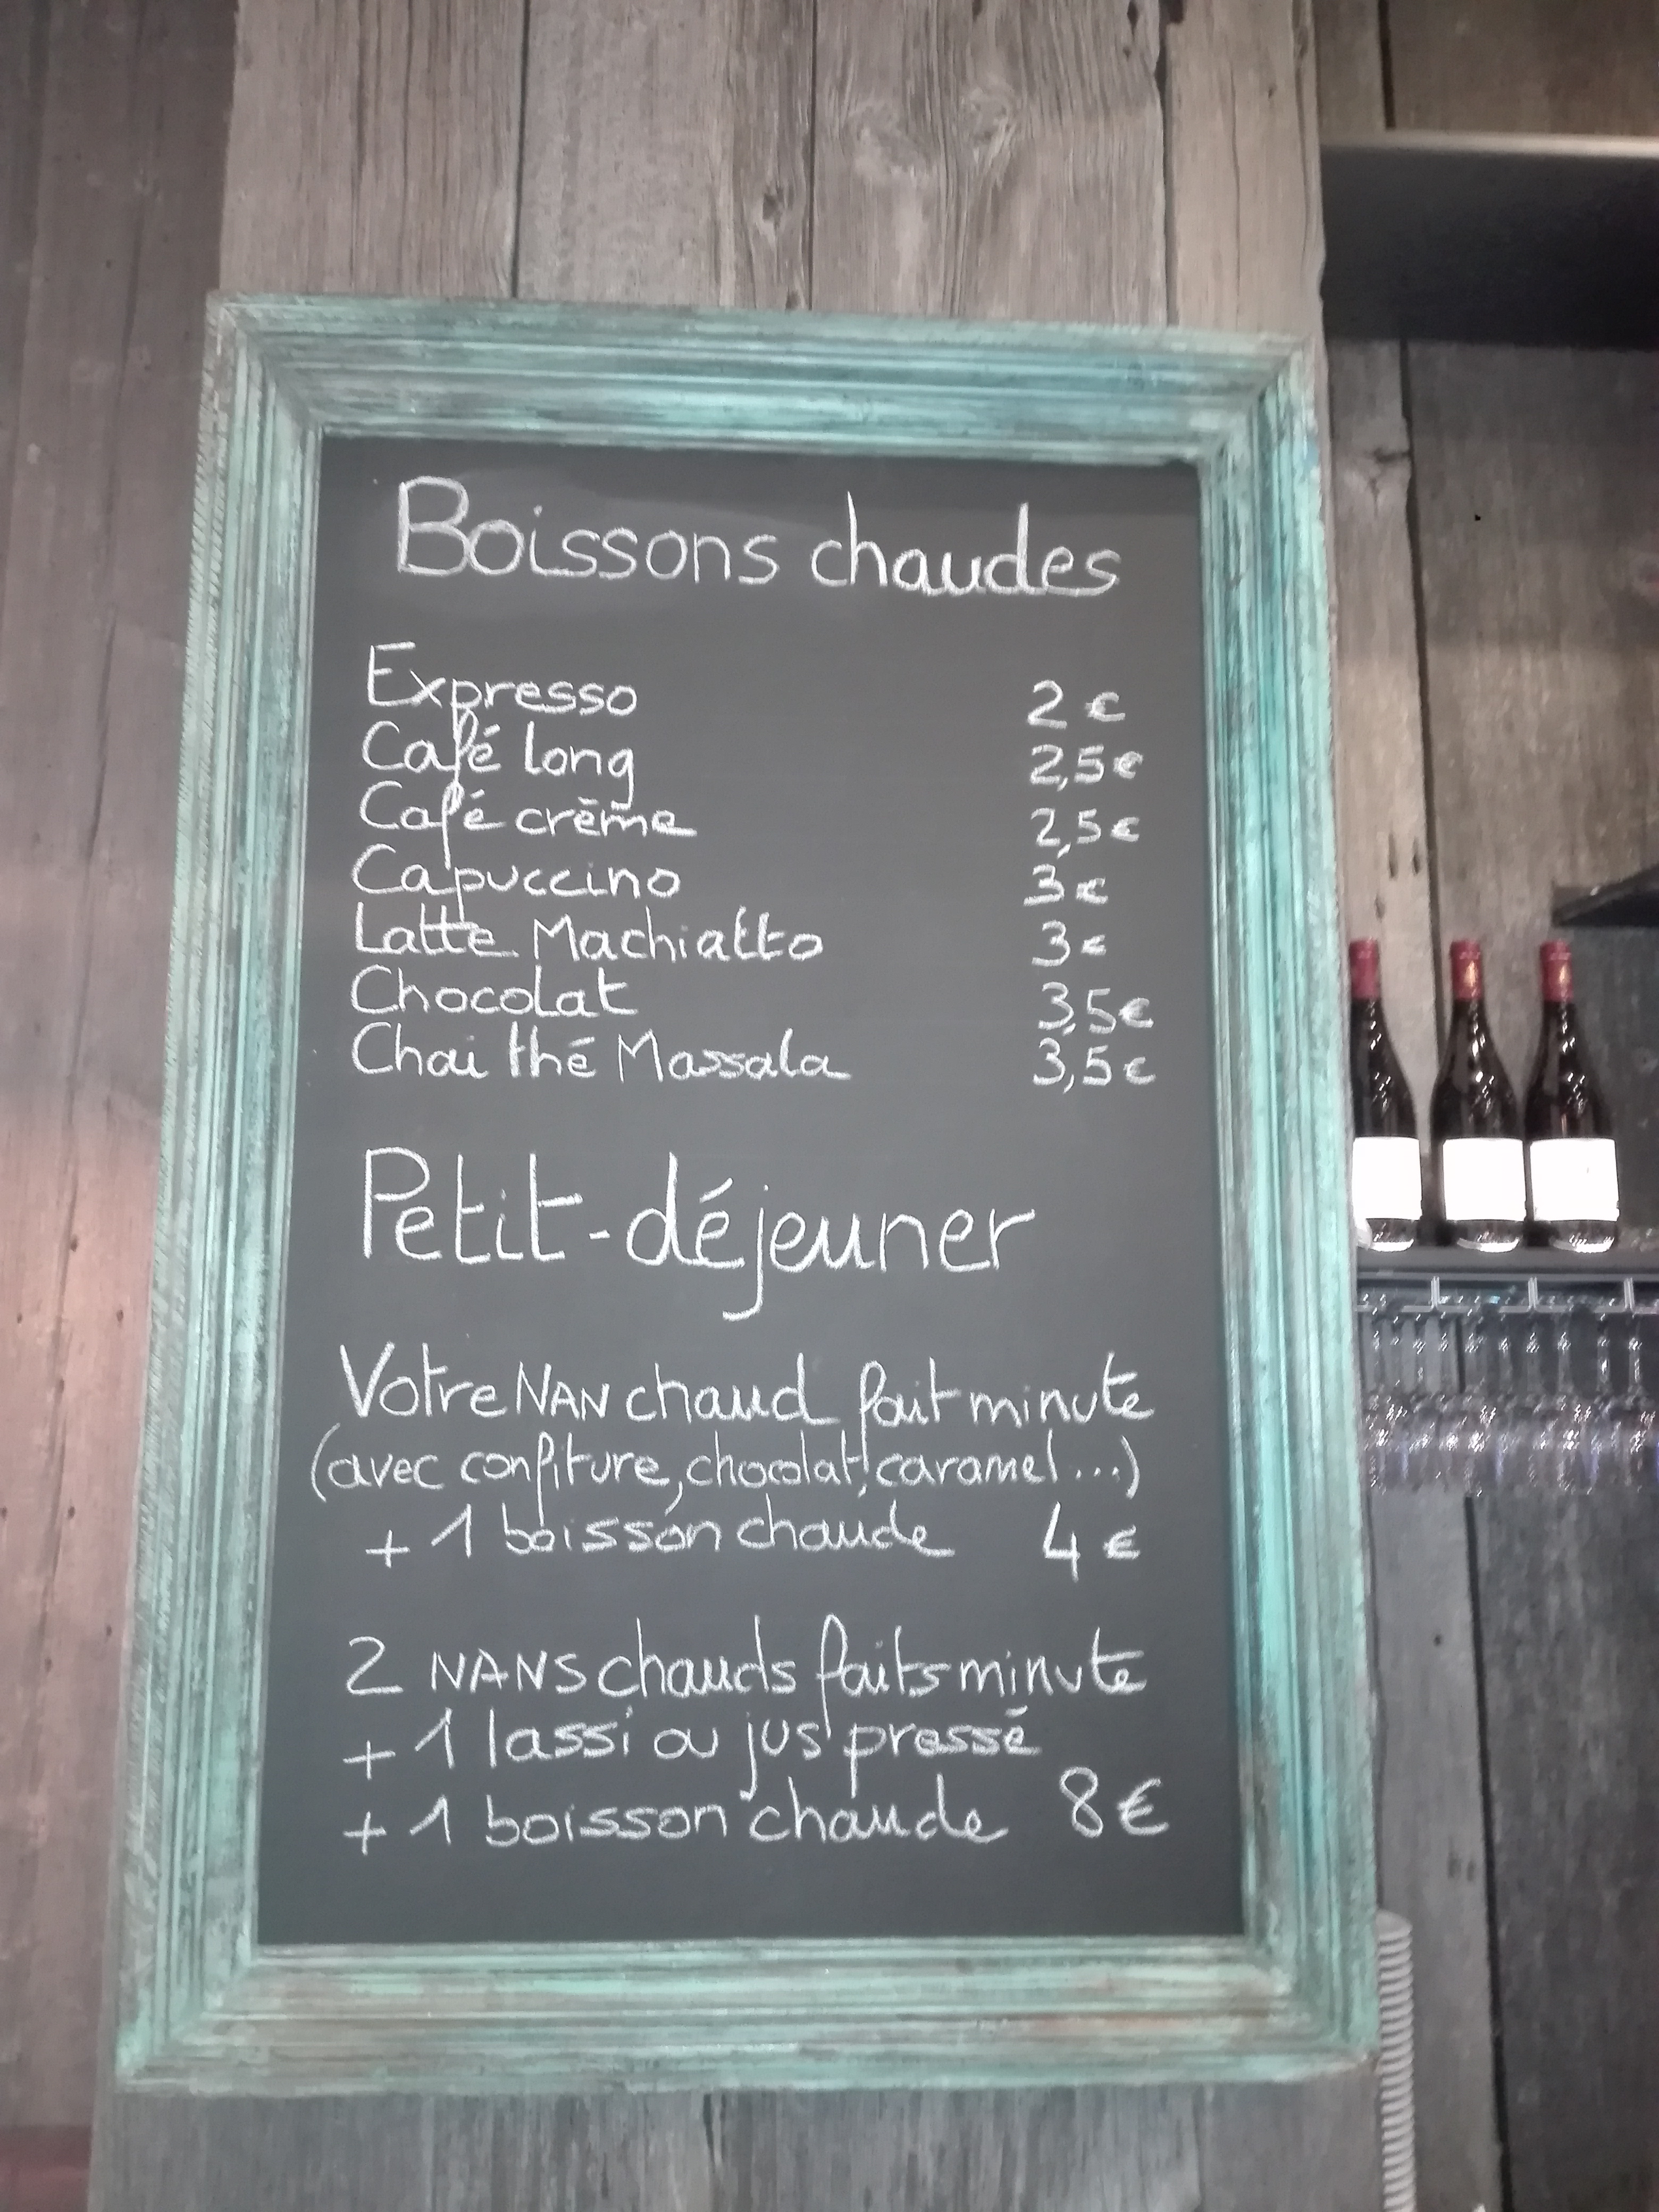 Boissons chaudes
Expresso 2 €
Café long 2,5 €
Café crème 2,5 €
Capuccino 3 €
Latte Machiatto 3 €
Chocolat 3,5 €
Chai thé Massala 3,5 €
Petit-déjeuner
Votre NAN chaud fait minute
(avec confiture, chocolat, caramel...)
+ 1 boisson chaude 4 €
2 NANS chauds faits minute
+ 1 lassi ou jus pressé
+ 1 boisson chaude 8 €